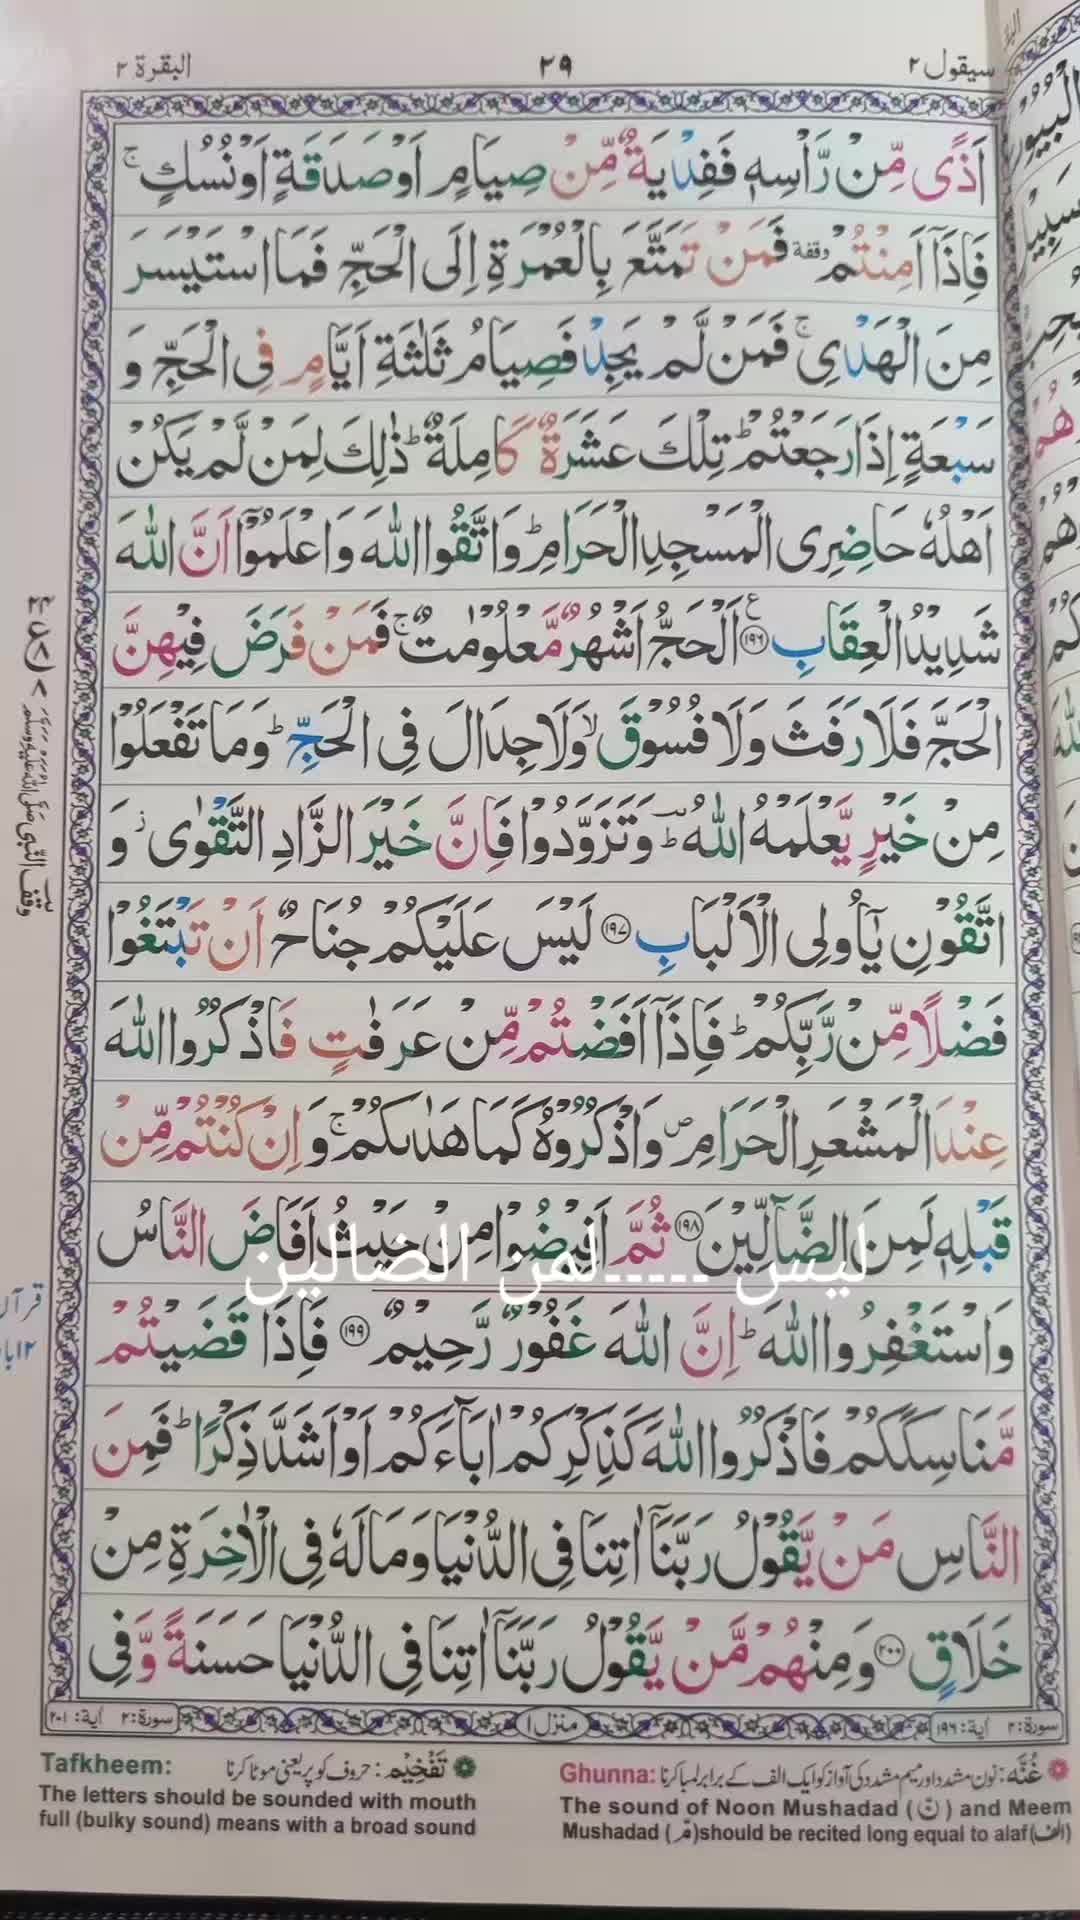 سيقول ٢
٢٩
البقرة ٢
اَذًى مِّنْ رَّاْسِهٖ فَفِدْيَةٌ مِّنْ صِيَامٍ اَوْ صَدَقَةٍ اَوْ نُسُكٍ ۚ
فَاِذَاۤ اَمِنْتُمْ ۥ وقفة فَمَنْ تَمَتَّعَ بِالْعُمْرَةِ اِلَى الْحَجِّ فَمَا اسْتَيْسَرَ
مِنَ الْهَدْىِ ۚ فَمَنْ لَّمْ يَجِدْ فَصِيَامُ ثَلٰثَةِ اَيَّامٍ فِى الْحَجِّ وَ
سَبْعَةٍ اِذَا رَجَعْتُمْ ؕ تِلْكَ عَشَرَةٌ كَامِلَةٌ ؕ ذٰلِكَ لِمَنْ لَّمْ يَكُنْ
اَهْلُهٗ حَاضِرِى الْمَسْجِدِ الْحَرَامِ ؕ وَاتَّقُوا اللّٰهَ وَاعْلَمُوْۤا اَنَّ اللّٰهَ
شَدِيْدُ الْعِقَابِ ﴿١٩٦﴾ ع اَلْحَجُّ اَشْهُرٌ مَّعْلُوْمٰتٌ ۚ فَمَنْ فَرَضَ فِيْهِنَّ
الْحَجَّ فَلَا رَفَثَ وَلَا فُسُوْقَ ۙ وَلَا جِدَالَ فِى الْحَجِّ ؕ وَمَا تَفْعَلُوْا
مِنْ خَيْرٍ يَّعْلَمْهُ اللّٰهُ ؕ وَتَزَوَّدُوْا فَاِنَّ خَيْرَ الزَّادِ التَّقْوٰى ؗ وَ
اتَّقُوْنِ يٰۤاُولِى الْاَلْبَابِ ﴿١٩٧﴾ لَيْسَ عَلَيْكُمْ جُنَاحٌ اَنْ تَبْتَغُوْا
فَضْلًا مِّنْ رَّبِّكُمْ ؕ فَاِذَاۤ اَفَضْتُمْ مِّنْ عَرَفٰتٍ فَاذْكُرُوا اللّٰهَ
عِنْدَ الْمَشْعَرِ الْحَرَامِ ۪ وَاذْكُرُوْهُ كَمَا هَدٰىكُمْ ۚ وَاِنْ كُنْتُمْ مِّنْ
قَبْلِهٖ لَمِنَ الضَّآلِّيْنَ ﴿١٩٨﴾ ثُمَّ اَفِيْضُوْا مِنْ حَيْثُ اَفَاضَ النَّاسُ
ليس -----لمن الضالين
وَاسْتَغْفِرُوا اللّٰهَ ؕ اِنَّ اللّٰهَ غَفُوْرٌ رَّحِيْمٌ ﴿١٩٩﴾ فَاِذَا قَضَيْتُمْ
مَّنَاسِكَكُمْ فَاذْكُرُوا اللّٰهَ كَذِكْرِكُمْ اٰبَآءَكُمْ اَوْ اَشَدَّ ذِكْرًا ؕ فَمِنَ
النَّاسِ مَنْ يَّقُوْلُ رَبَّنَاۤ اٰتِنَا فِى الدُّنْيَا وَمَا لَهٗ فِى الْاٰخِرَةِ مِنْ
خَلَاقٍ ﴿٢٠٠﴾ وَمِنْهُمْ مَّنْ يَّقُوْلُ رَبَّنَاۤ اٰتِنَا فِى الدُّنْيَا حَسَنَةً وَّفِى
سورة: ٢ آية: ١٩٦
منزل ١
سورة: ٢ آية: ٢٠١
وقف النبي صلى الله عليه وسلم
Ghunna: غُنَّه: نون مشدد اور میم مشدد کی آواز کو ایک الف کے برابر لمبا کرنا
The sound of Noon Mushadad (نّ) and Meem
Mushadad (مّ) should be recited long equal to alaf (الف)
Tafkheem: تَفْخِيْم: حروف کو پُر یعنی موٹا کرنا
The letters should be sounded with mouth
full (bulky sound) means with a broad sound